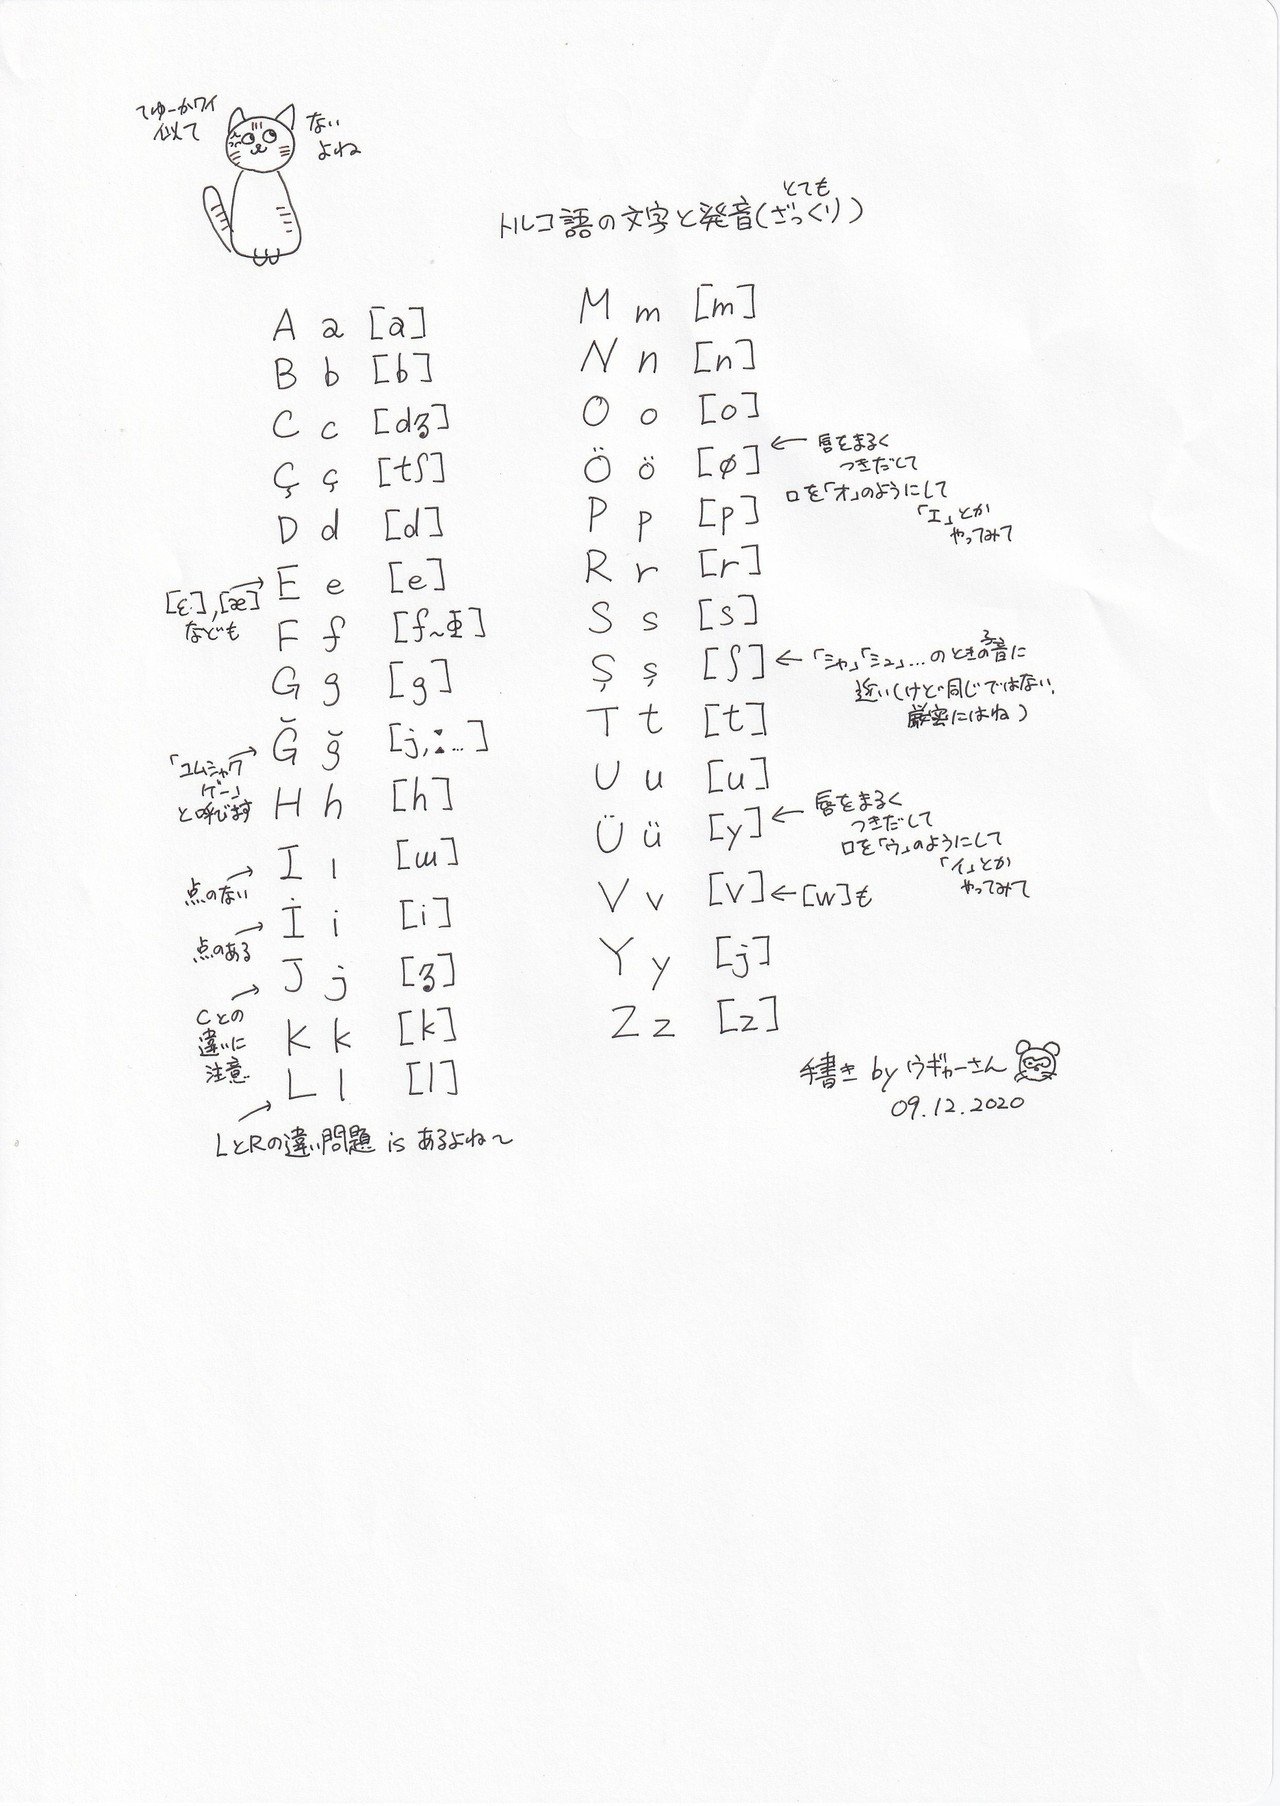 てゆーかワイ
似て
ない
よね
トルコ語の文字と発音(とてもざっくり)
A a [a]
B b [b]
C c [dʒ]
Ç ç [tʃ]
D d [d]
E e [e]
[ɛ],[æ]
なども
F f [f~Φ]
G g [g]
Ğ ğ [j,ː...]
「ユムシャク
ゲー」
と呼びます
H h [h]
I ı [ɯ]
点のない
İ i [i]
点のある
J j [ʒ]
Cとの
違いに
注意
K k [k]
L l [l]
LとRの違い問題 is あるよね〜
M m [m]
N n [n]
O o [o]
Ö ö [ø] ← 唇をまるく
つきだして
口を「オ」のようにして
「エ」とか
やってみて
P p [p]
R r [r]
S s [s]
Ş ş [ʃ] ← 「シャ」「シュ」...のときの子音に
近い(けど同じではない、
厳密にはね)
T t [t]
U u [u]
Ü ü [y] ← 唇をまるく
つきだして
口を「ウ」のようにして
「イ」とか
やってみて
V v [v] ← [w]も
Y y [j]
Z z [z]
手書き by ウギャーさん
09.12.2020